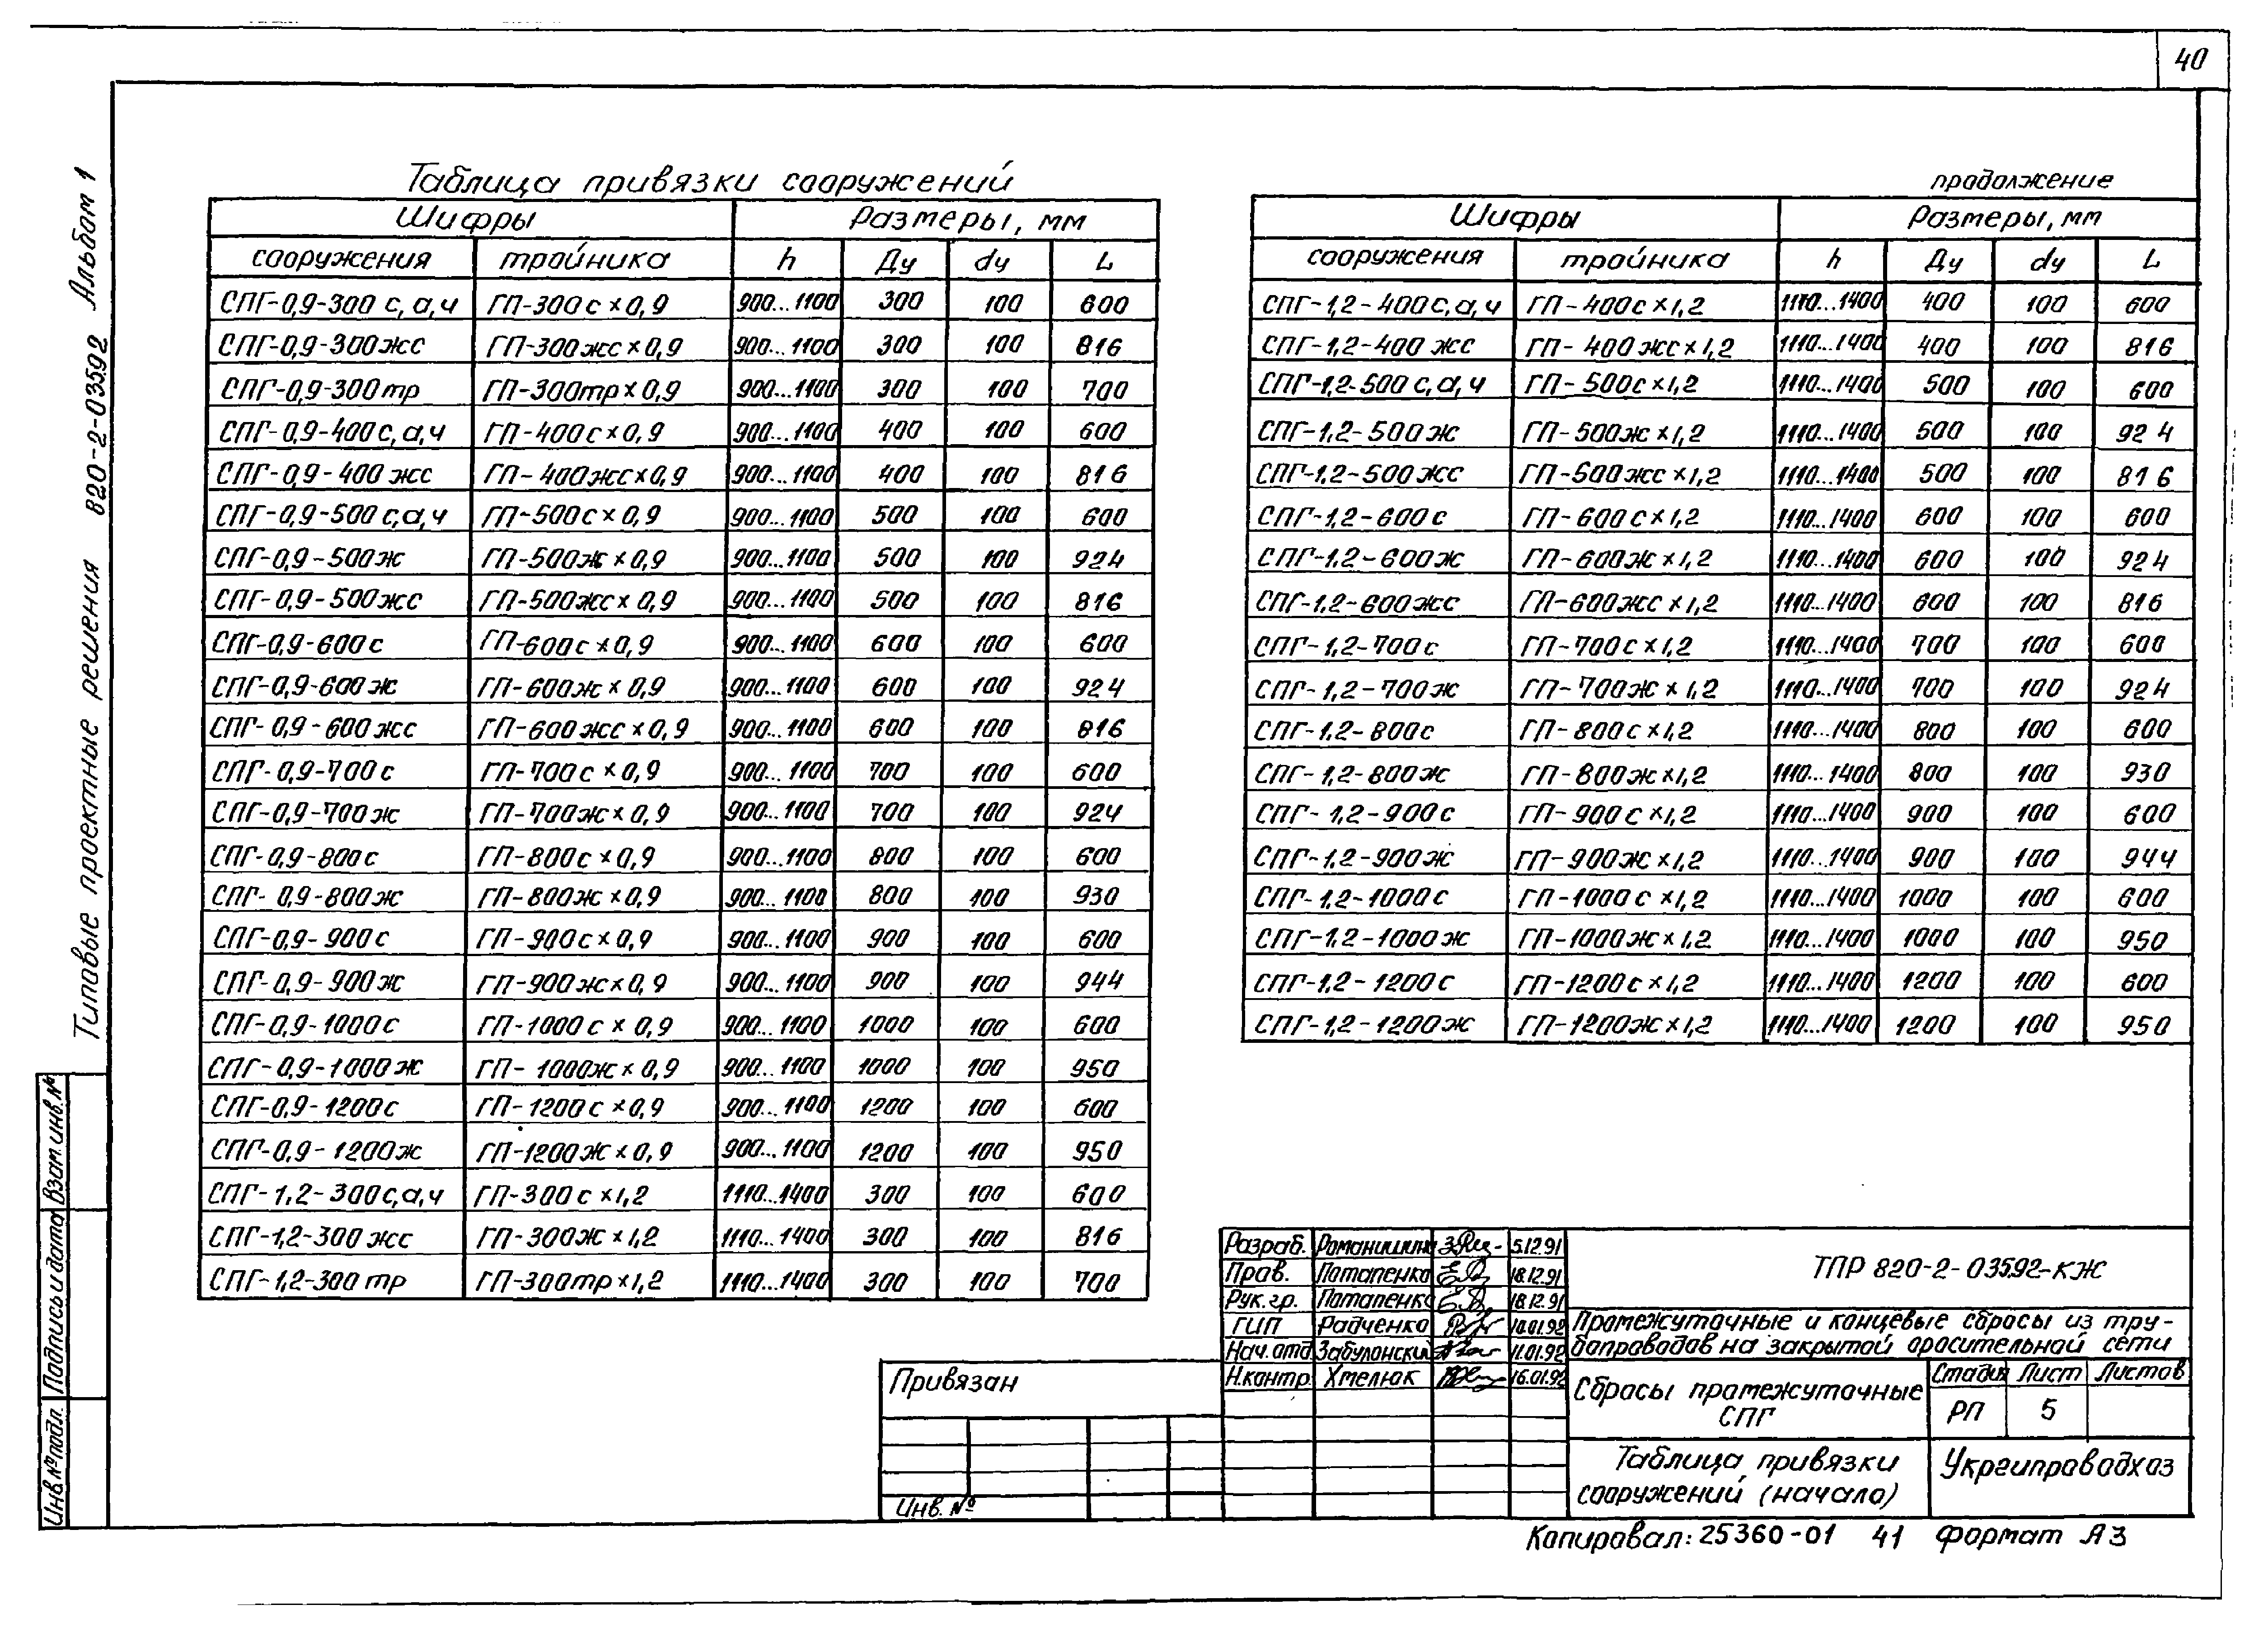 40
Типовые проектные решения 820-2-03592 Альбом 1
Таблица привязки сооружений
Шифры Размеры, мм
сооружения тройника h Ду dу L
СПГ-0,9-300 с, а, ч ГП-300с×0,9 900...1100 300 100 600
СПГ-0,9-300жс ГП-300жс×0,9 900...1100 300 100 816
СПГ-0,9-300тр ГП-300тр×0,9 900...1100 300 100 700
СПГ-0,9-400с, а, ч ГП-400с×0,9 900...1100 400 100 600
СПГ-0,9-400жс ГП-400жс×0,9 900...1100 400 100 816
СПГ-0,9-500с, а, ч ГП-500с×0,9 900...1100 500 100 600
СПГ-0,9-500ж ГП-500ж×0,9 900...1100 500 100 924
СПГ-0,9-500жс ГП-500жс×0,9 900...1100 500 100 816
СПГ-0,9-600с ГП-600с×0,9 900...1100 600 100 600
СПГ-0,9-600ж ГП-600ж×0,9 900...1100 600 100 924
СПГ-0,9-600жс ГП-600жс×0,9 900...1100 600 100 816
СПГ-0,9-700с ГП-700с×0,9 900...1100 700 100 600
СПГ-0,9-700ж ГП-700ж×0,9 900...1100 700 100 924
СПГ-0,9-800с ГП-800с×0,9 900...1100 800 100 600
СПГ-0,9-800ж ГП-800ж×0,9 900...1100 800 100 930
СПГ-0,9-900с ГП-900с×0,9 900...1100 900 100 600
СПГ-0,9-900ж ГП-900ж×0,9 900...1100 900 100 944
СПГ-0,9-1000с ГП-1000с×0,9 900...1100 1000 100 600
СПГ-0,9-1000ж ГП-1000ж×0,9 900...1100 1000 100 950
СПГ-0,9-1200с ГП-1200с×0,9 900...1100 1200 100 600
СПГ-0,9-1200ж ГП-1200ж×0,9 900...1100 1200 100 950
СПГ-1,2-300с, а, ч ГП-300с×1,2 1110...1400 300 100 600
СПГ-1,2-300жс ГП-300ж×1,2 1110...1400 300 100 816
СПГ-1,2-300тр ГП-300тр×1,2 1110...1400 300 100 700
продолжение
Шифры Размеры, мм
сооружения тройника h Ду dу L
СПГ-1,2-400с, а, ч ГП-400с×1,2 1110...1400 400 100 600
СПГ-1,2-400жс ГП-400жс×1,2 1110...1400 400 100 816
СПГ-1,2-500с, а, ч ГП-500с×1,2 1110...1400 500 100 600
СПГ-1,2-500ж ГП-500ж×1,2 1110...1400 500 100 924
СПГ-1,2-500жс ГП-500жс×1,2 1110...1400 500 100 816
СПГ-1,2-600с ГП-600с×1,2 1110...1400 600 100 600
СПГ-1,2-600ж ГП-600ж×1,2 1110...1400 600 100 924
СПГ-1,2-600жс ГП-600жс×1,2 1110...1400 600 100 816
СПГ-1,2-700с ГП-700с×1,2 1110...1400 700 100 600
СПГ-1,2-700ж ГП-700ж×1,2 1110...1400 700 100 924
СПГ-1,2-800с ГП-800с×1,2 1110...1400 800 100 600
СПГ-1,2-800ж ГП-800ж×1,2 1110...1400 800 100 930
СПГ-1,2-900с ГП-900с×1,2 1110...1400 900 100 600
СПГ-1,2-900ж ГП-900ж×1,2 1110...1400 900 100 944
СПГ-1,2-1000с ГП-1000с×1,2 1110...1400 1000 100 600
СПГ-1,2-1000ж ГП-1000ж×1,2 1110...1400 1000 100 950
СПГ-1,2-1200с ГП-1200с×1,2 1110...1400 1200 100 600
СПГ-1,2-1200ж ГП-1200ж×1,2 1110...1400 1200 100 950
Разраб. Романишина 5.12.91
Пров. Потапенко 18.12.91
Рук.гр. Потапенко 18.12.91
ГИП Радченко 10.01.92
Нач.отд Забулонский 11.01.92
Н.контр. Хмелюк 16.01.92
ТПР 820-2-03592-КЖ
Промежуточные и концевые сбросы из тру-
бопроводов на закрытой оросительной сети
Сбросы промежуточные
СПГ
Стадия Лист Листов
РП 5
Таблица привязки
сооружений (начало)
Укргипроводхоз
Привязан
Инв. №
Инв.№подл. Подпись и дата Взам.инв.№
Копировал: 25360-01 41 формат А3